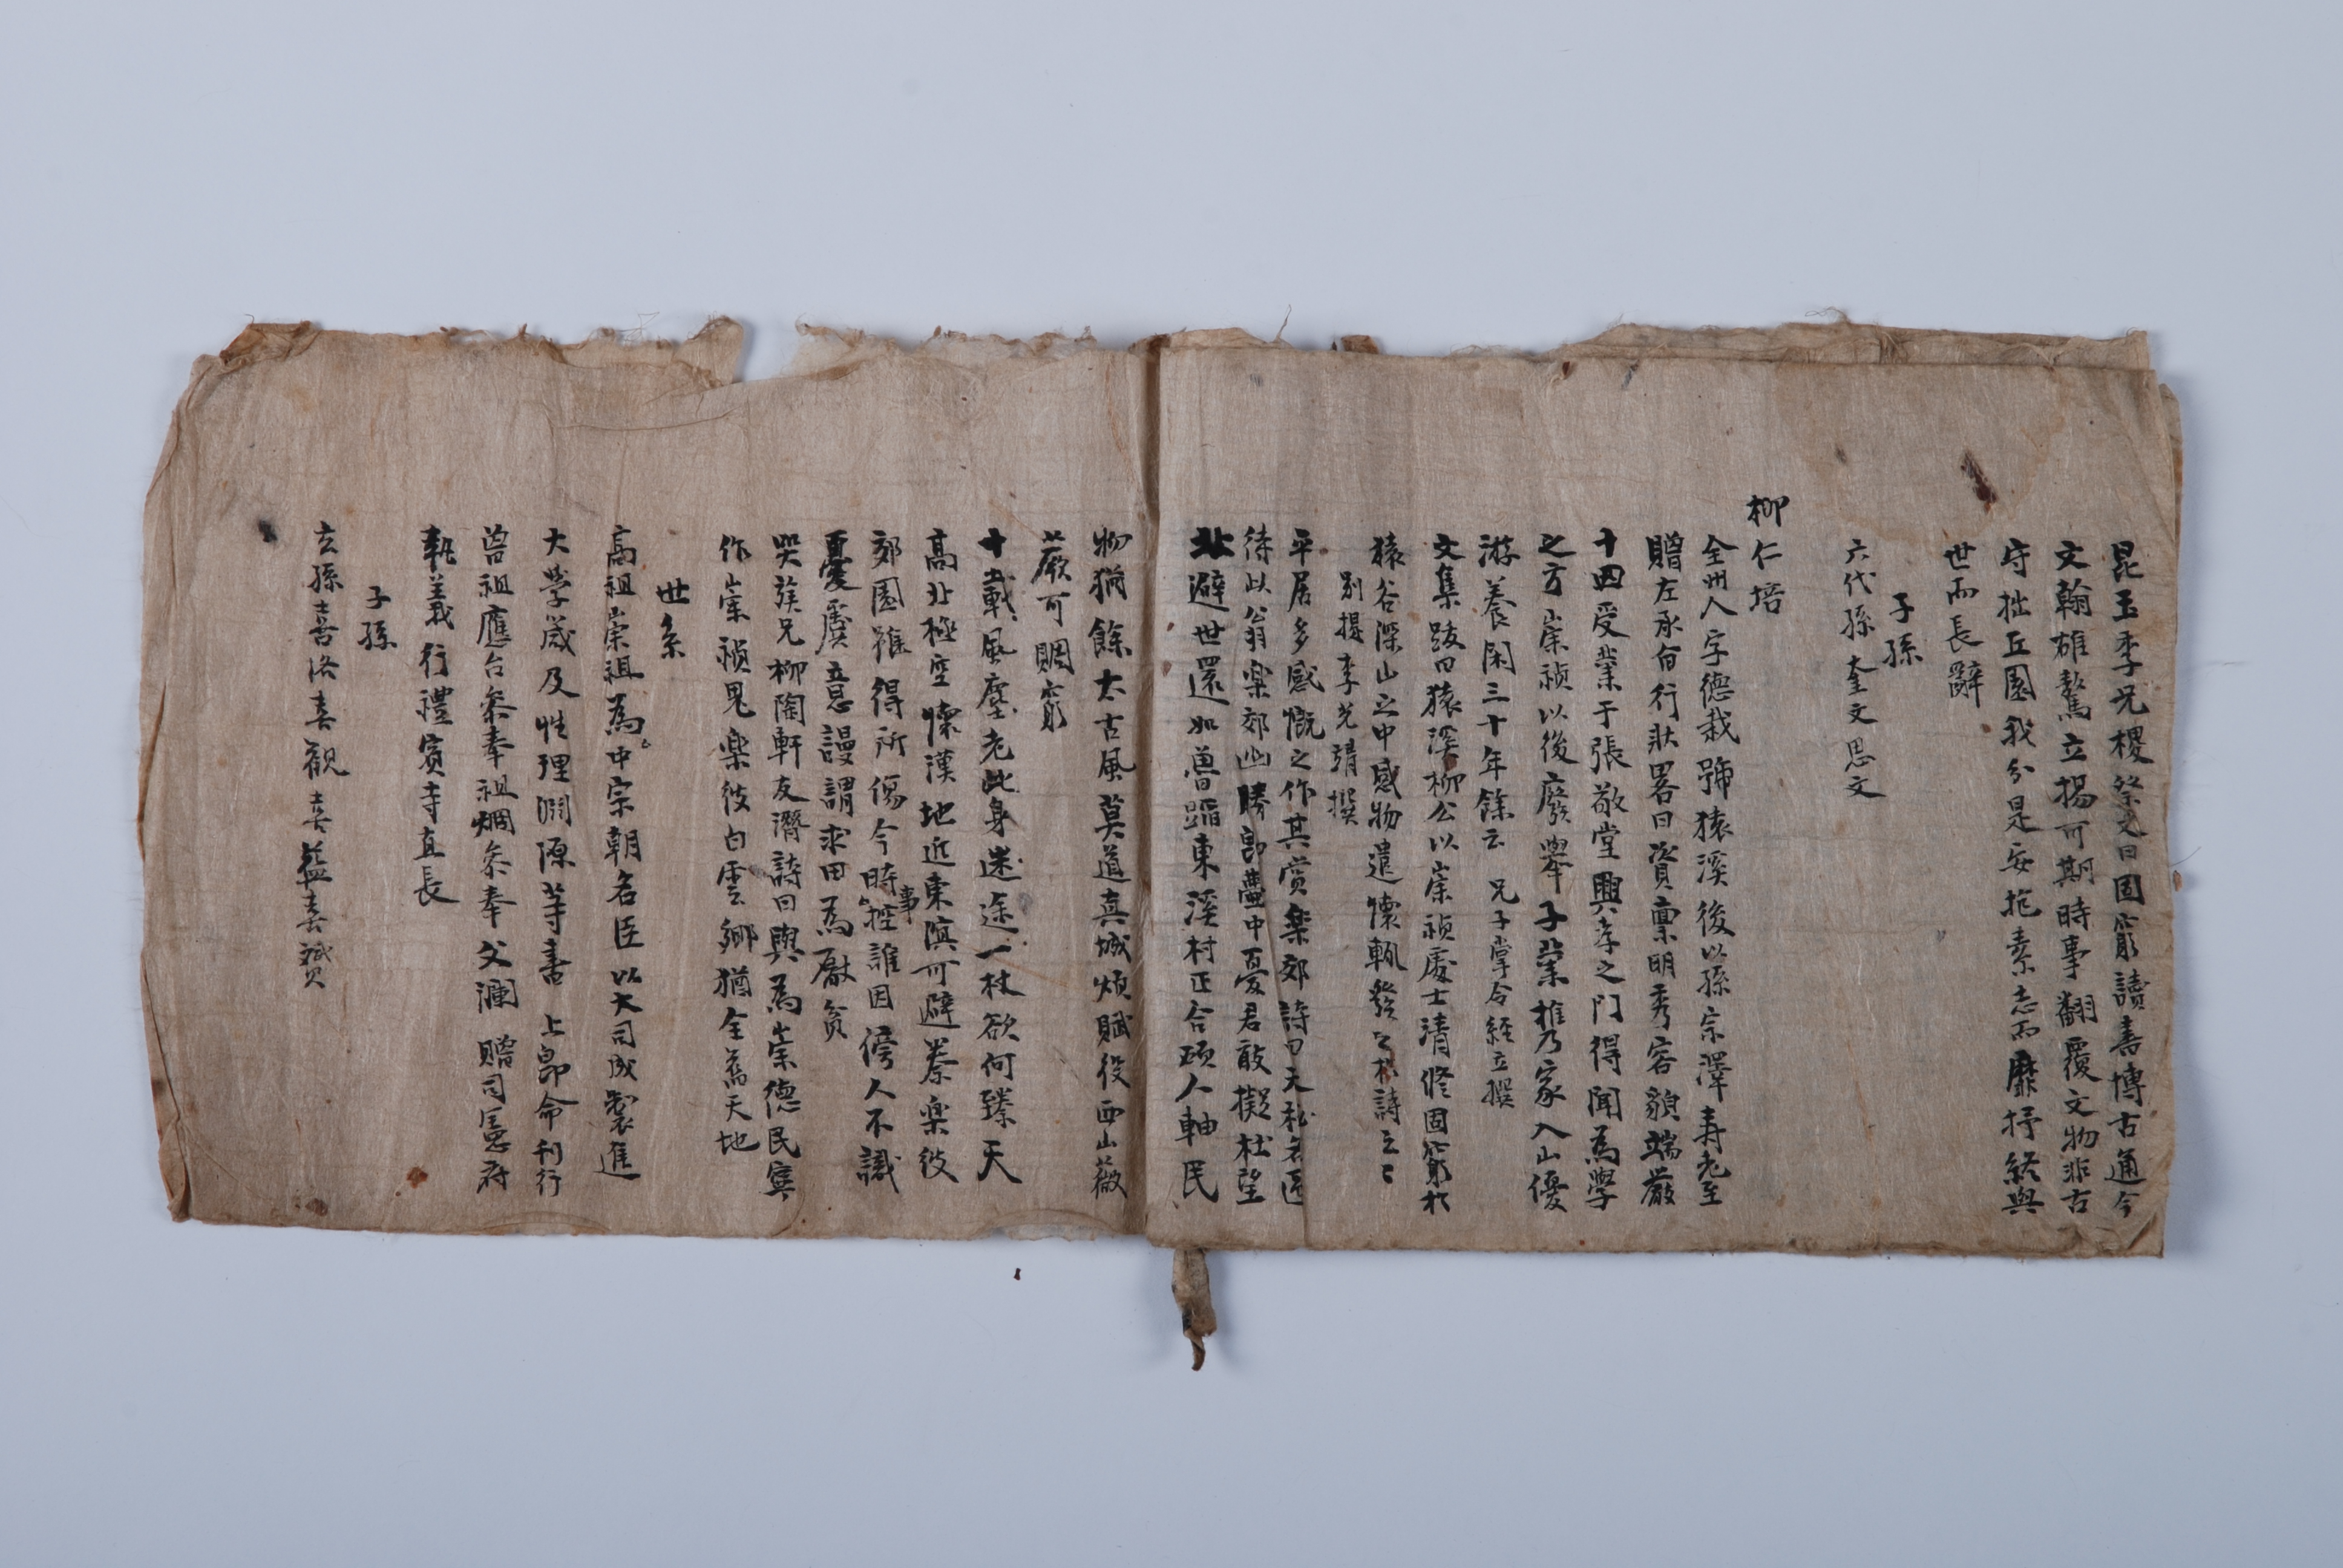 昆玉季兄㮨祭文曰固窮讀書博古通今
文翰雄驁立揚可期時事翻覆文物非古
守拙丘園我分是安抱素志而靡抒終與
世而長辭
子孫
六代孫奎文思文
柳仁培
全州人字德栽號猿溪後以孫宗澤壽老至
贈左承旨行狀畧曰資稟明秀容貌端嚴
十四受業于張敬堂興孝之門得聞為學
之方崇禎以後廢舉子業推乃家入山優
游養閑三十年餘云 兄子掌令經立撰
文集跋曰猿溪柳公以崇禎處士清修固窮於
猿谷深山之中感物遣懷輒發之於詩云云
別提李光靖撰
平居多感慨之作其賞樂郊詩曰天秘名區
待以翁樂郊幽勝郎薖中憂君敢擬杜望
北避世還如魯蹈東溪村正合碩人軸民
物猶餘太古風莫道真城煩賦役西山薇
蕨可賙窮
十載風塵老此身迷途一杖欲何臻天
高北極空懷漢地近東溟可避秦樂彼
郊園雖得所傷今時事控誰因傍人不識
憂虞意謾謂求田為厭貧
哭蔟兄柳陶軒友潛詩曰興為崇德民寧
作崇禎鬼樂彼白雲鄉猶全舊天地
世系
高祖崇祖為中宗朝名臣以大司成製進
大學箴及性理淵源等書 上郎命刊行
曾祖應台參奉祖烱參奉父瀾 贈司憲府
執義行禮賓寺直長
子孫
玄孫喜洛喜觀喜藍喜贇